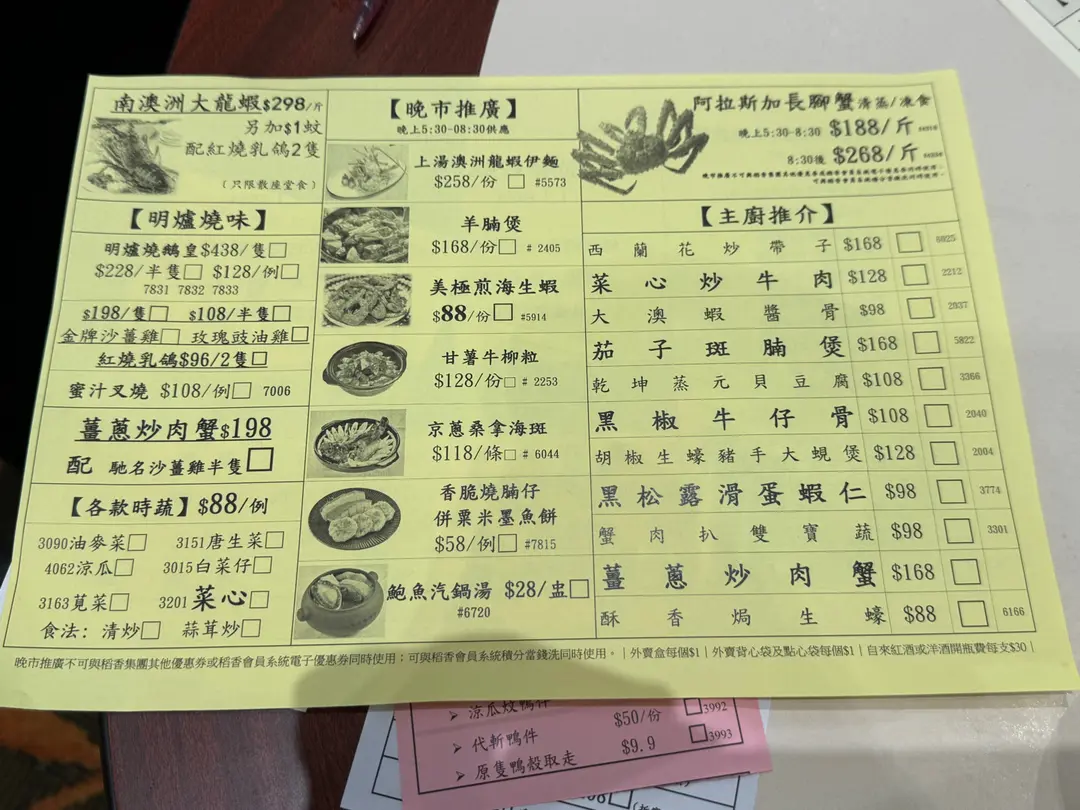 南澳洲大龍蝦$298/斤
另加$1蚊
配紅燒乳鴿2隻
(只限散座堂食)
【明爐燒味】
明爐燒鵝皇$438/隻□
$228/半隻□ $128/例□
7831 7832 7833
$198/隻□ $108/半隻□
金牌沙薑雞□ 玫瑰豉油雞□
紅燒乳鴿$96/2隻□
蜜汁叉燒 $108/例□ 7006
薑蔥炒肉蟹$198
配 馳名沙薑雞半隻□
【各款時蔬】$88/例
3090油麥菜□ 3151唐生菜□
4062涼瓜□ 3015白菜仔□
3163莧菜□ 3201菜心□
食法: 清炒□ 蒜茸炒□
【晚市推廣】
晚上5:30-08:30供應
上湯澳洲龍蝦伊麵
$258/份 □ #5573
羊腩煲
$168/份□ # 2405
美極煎海生蝦
$88/份□ #5914
甘薯牛柳粒
$128/份□ # 2253
京蔥桑拿海斑
$118/條□ # 6044
香脆燒腩仔
併粟米墨魚餅
$58/例□ #7815
鮑魚汽鍋湯 $28/盅□
#6720
阿拉斯加長腳蟹清蒸/凍食
晚上5:30-8:30 $188/斤
8:30後 $268/斤
晚市推廣不可與稻香集團其他優惠券或稻香會員系統電子優惠券同時使用，
可與稻香會員系統積分當錢洗同時使用。
【主廚推介】
西蘭花炒帶子 $168 □ 6025
菜心炒牛肉 $128 □ 2212
大澳蝦醬骨 $98 □ 2037
茄子斑腩煲 $168 □ 5822
乾坤蒸元貝豆腐 $108 □ 3366
黑椒牛仔骨 $108 □ 2040
胡椒生蠔豬手大蜆煲 $128 □ 2004
黑松露滑蛋蝦仁 $98 □ 3774
蟹肉扒雙寶蔬 $98 □ 3301
薑蔥炒肉蟹 $168 □
酥香焗生蠔 $88 □ 6166
晚市推廣不可與稻香集團其他優惠券或稻香會員系統電子優惠券同時使用；可與稻香會員系統積分當錢洗同時使用。｜外賣盒每個$1｜外賣背心袋及點心袋每個$1｜自來紅酒或洋酒開瓶費每支$30｜
➢ 涼瓜炆鴨件 $50/份 □3992
➢ 代斬鴨件 $9.9 □3993
➢ 原隻鴨殼取走